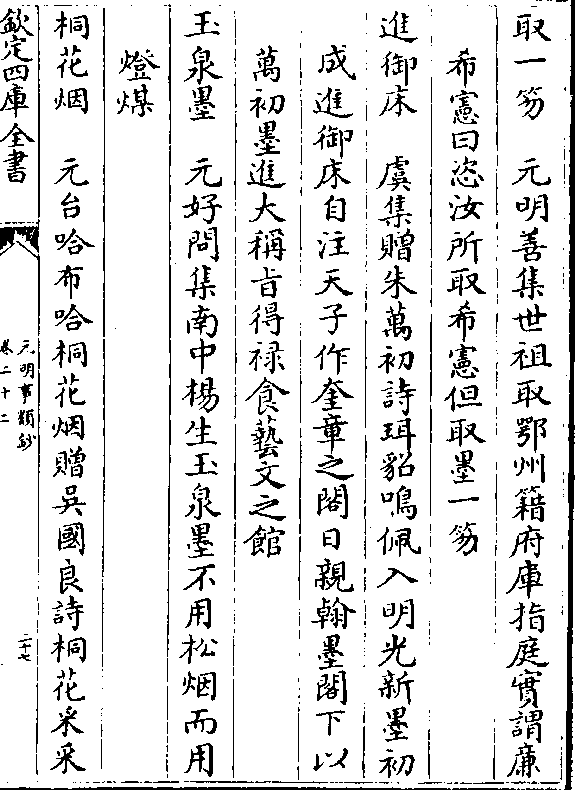 取一笏　元明善集世祖取鄂州籍府庫指庭實謂廉
希憲曰恣汝所取希憲但取墨一笏
進御床　虞集贈朱萬初詩珥貂鳴佩入明光新墨初
成進御床自注天子作奎章之閣日親翰墨閣下以
萬初墨進大稱旨得祿食藝文之館
玉泉墨　元好問集南中楊生玉泉墨不用松烟而用
燈煤
桐花烟　元台哈布哈桐花烟贈吳國良詩桐花采采
欽定四庫全書
元明事類鈔
卷二十二
二十七